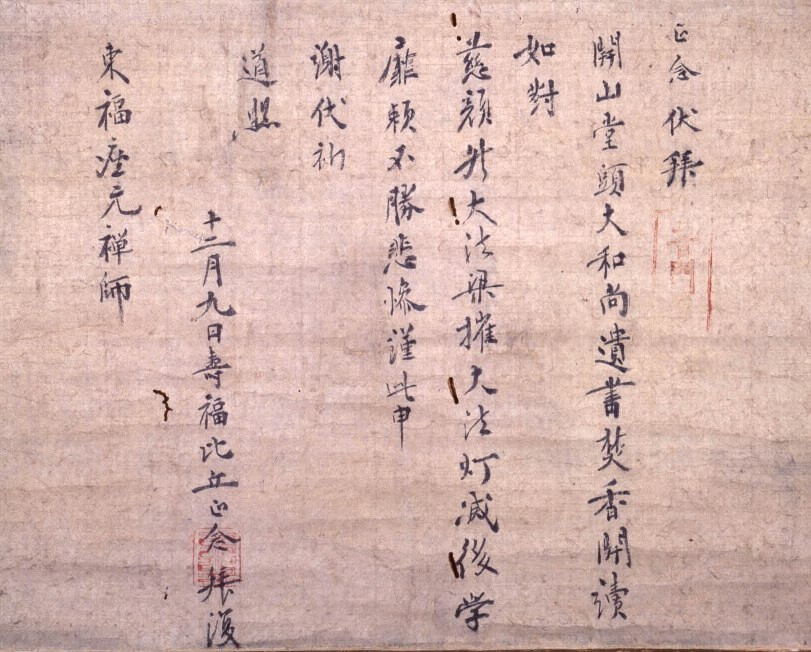 正念伏拜
開山堂頭大和尚遺書焚香開讀
如對
慈顔大法梁摧大法灯滅後学
靡頼不勝悲惨謹此申
謝伏祈
道照
十二月九日壽福比丘正念拜復
東福座元禅師